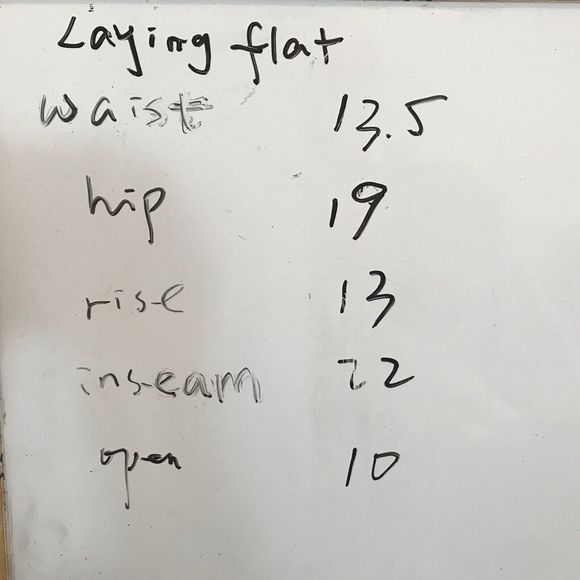 Laying flat
waist 13.5
hip 19
rise 13
inseam 22
open 10